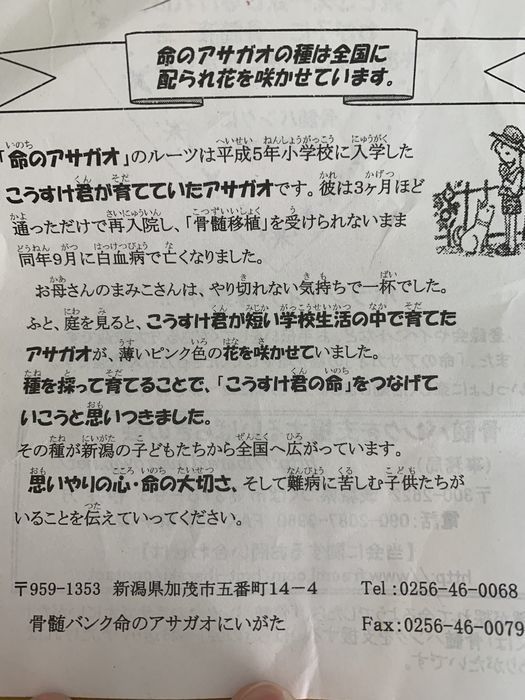 命のアサガオの種は全国に
配られ花を咲かせています。
「命のアサガオ」のルーツは平成5年小学校に入学した
こうすけ君が育てていたアサガオです。彼は3ヶ月ほど
通っただけで再入院し、「骨髄移植」を受けられないまま
同年9月に白血病で亡くなりました。
お母さんのまみこさんは、やり切れない気持ちで一杯でした。
ふと、庭を見ると、こうすけ君が短い学校生活の中で育てた
アサガオが、薄いピンク色の花を咲かせていました。
種を採って育てることで、「こうすけ君の命」をつなげて
いこうと思いつきました。
その種が新潟の子どもたちから全国へ広がっています。
思いやりの心・命の大切さ、そして難病に苦しむ子供たちが
いることを伝えていってください。
〒959-1353 新潟県加茂市五番町14-4 Tel:0256-46-0068
骨髄バンク命のアサガオにいがた Fax:0256-46-0079